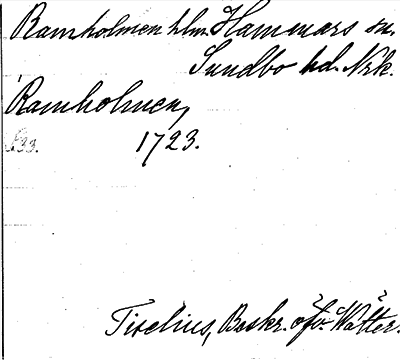 Ramholmen hlm. Hammars sn.
Sundbo hd. Nrk.
Ramholmen,
1723.
Tiselius, Beskr. öfv. Wätter.